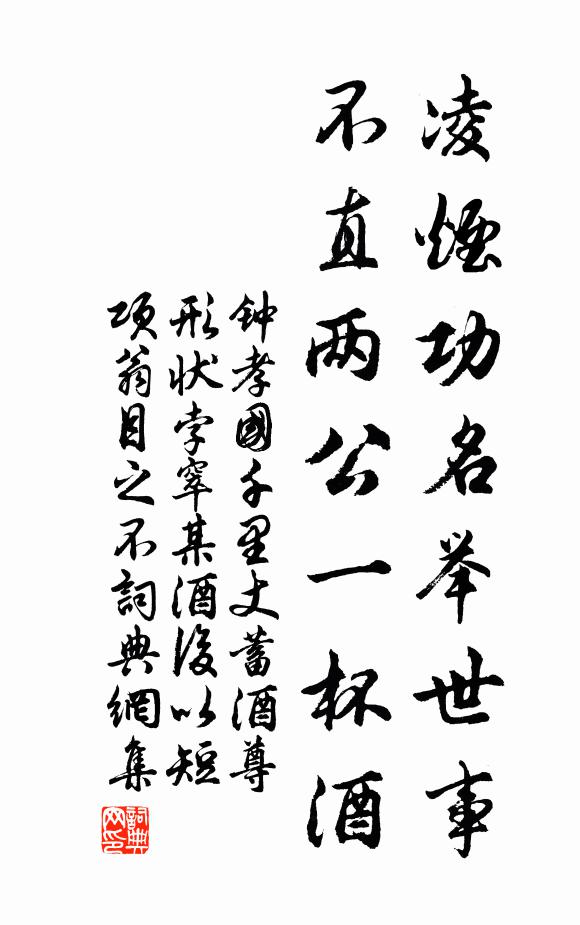 凌烟功名举世事
不直两公一杯酒
钟孝國千里丈蓄酒尊
形状孛窣某酒後以短
项翁目之不詞典網集
詞典網印